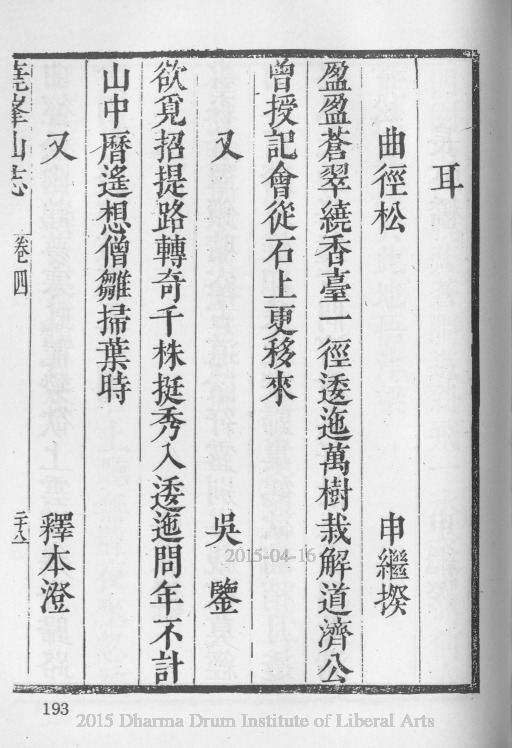 耳
曲徑松 申繼揆
盈盈蒼翠繞香臺一徑逶迤萬樹栽解道濟公
曾授記會從石上更移來
又 吳鑒
欲覓招提路轉奇千株挺秀入逶迤問年不計
山中曆遙想僧雛掃葉時
又 釋本澄
堯峯山志 卷四
2015-04-16
193
2015 Dharma Drum Institute of Liberal Arts